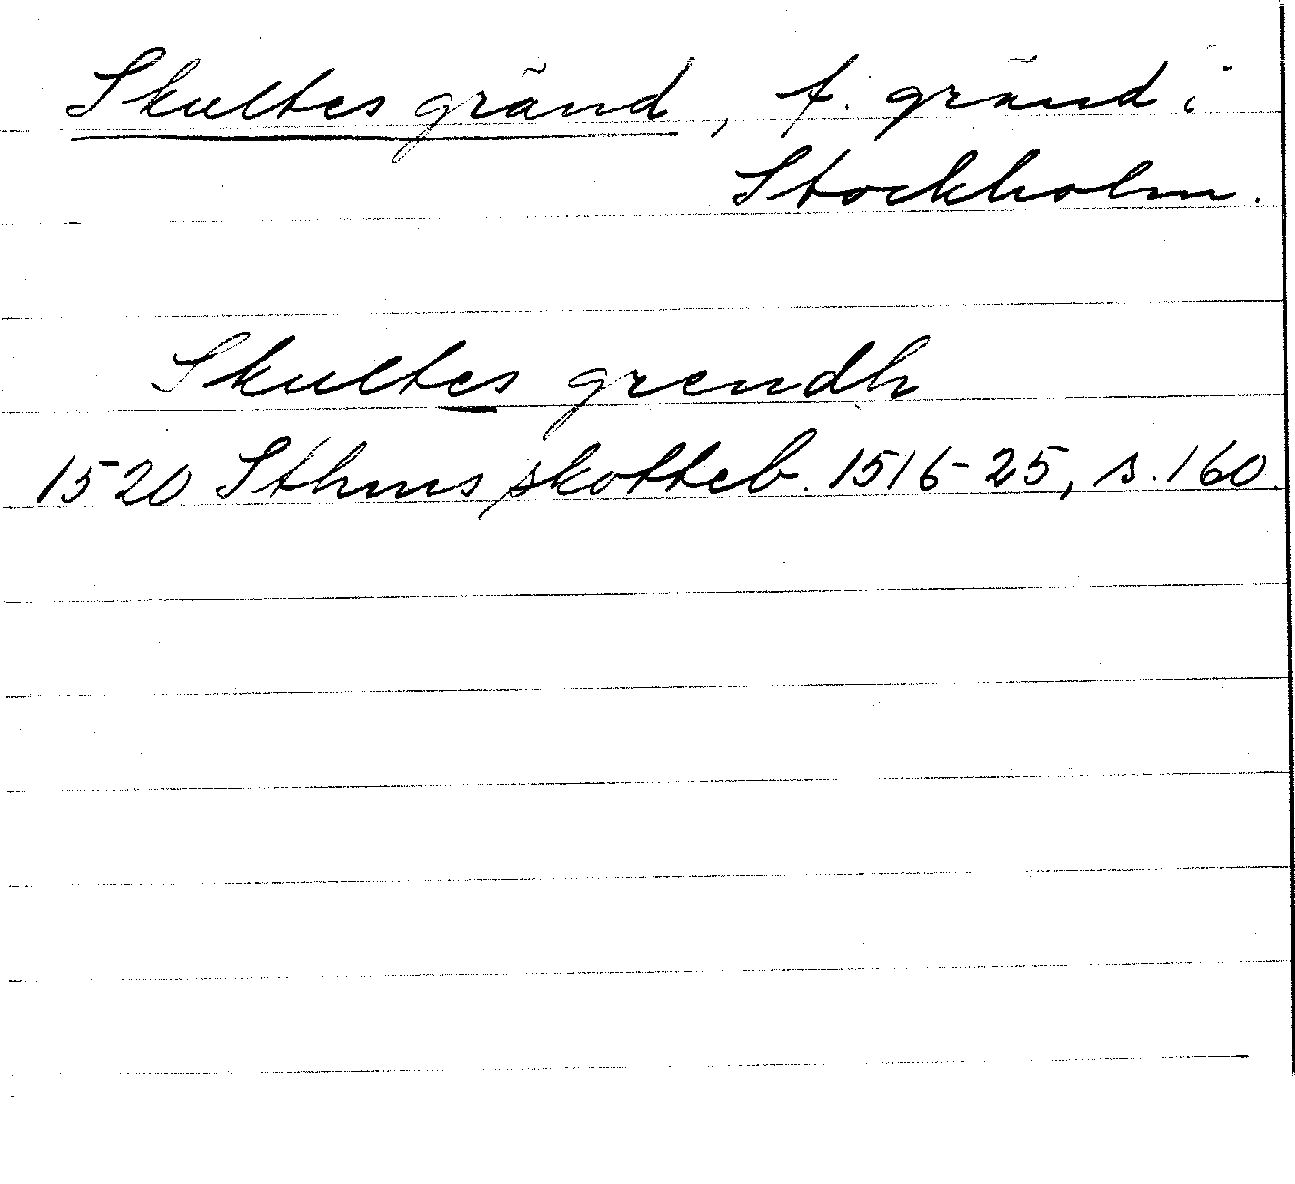 Skultes gränd, f. gränd i
Stockholm.
Skultes grendh
1520 Sthms skotteb. 1516-25, s. 160.